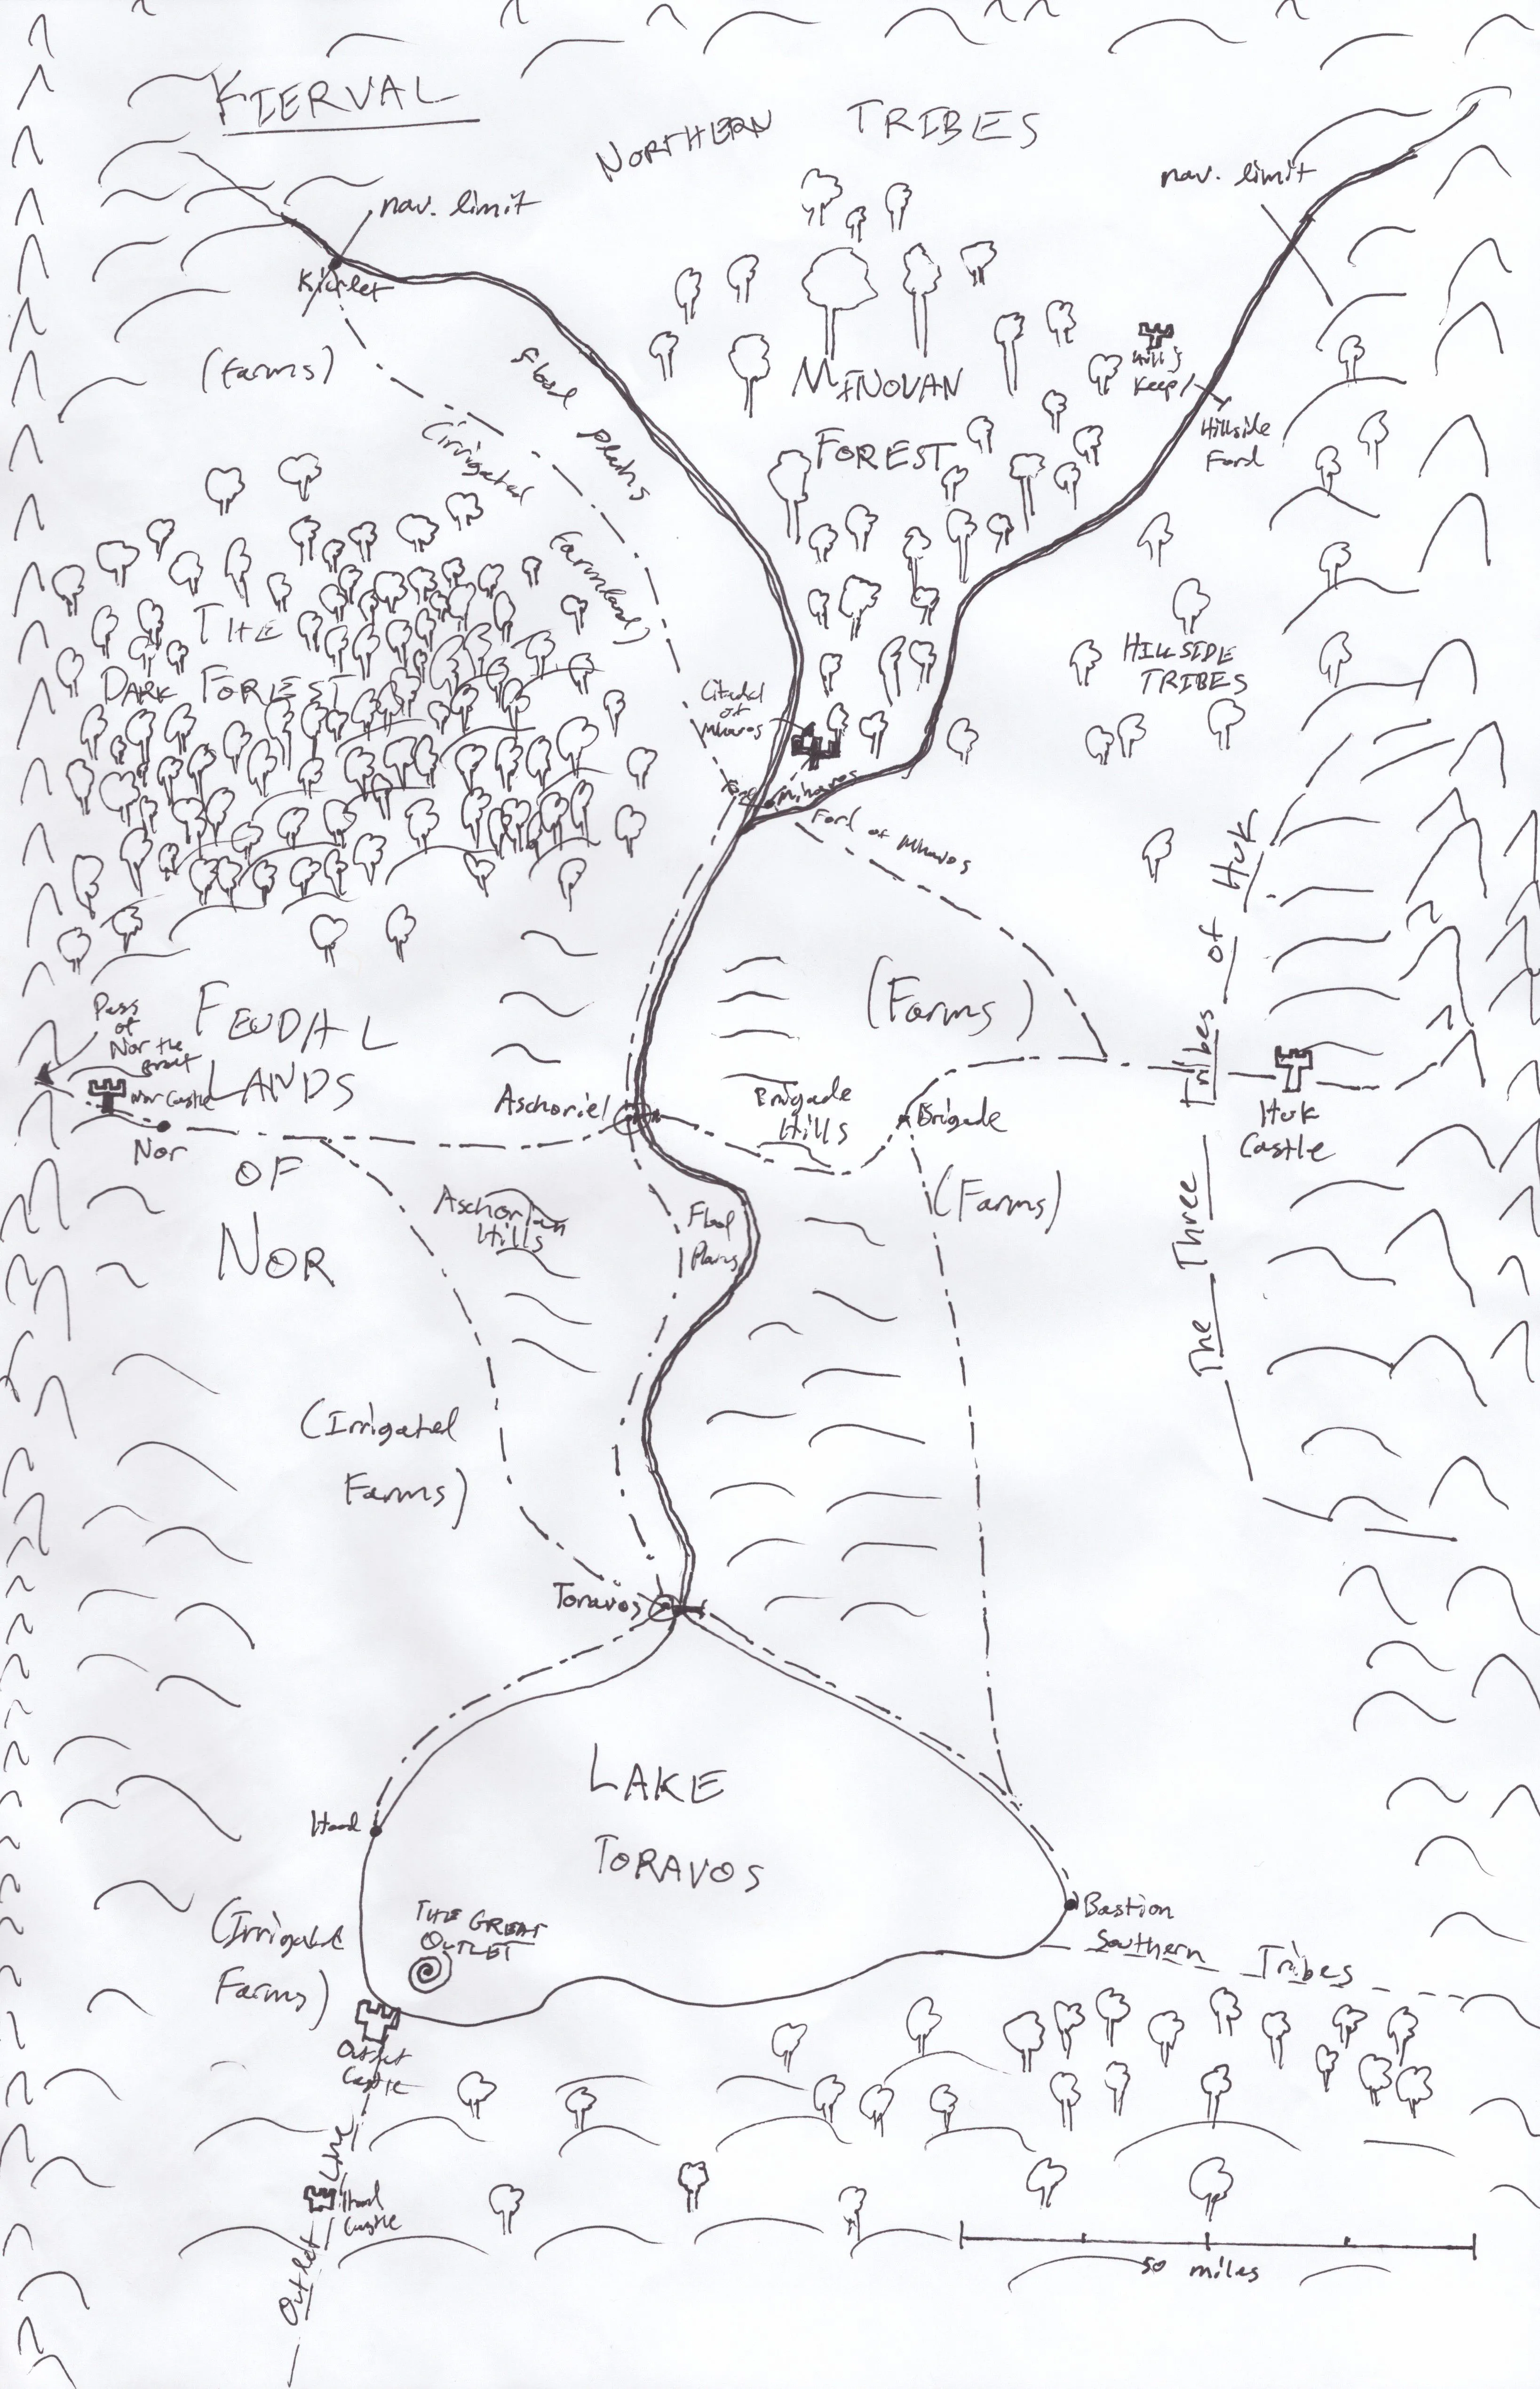 KIERVAL
NORTHERN TRIBES
nav. limit
nav. limit
(Farms)
Flood Plains
(Irrigated Farmland)
MINOVAN
FOREST
Keep
Hillside
Ford
THE
DARK FOREST
HILLSIDE
TRIBES
Citadel
of
Ford of
FEUDAL
LANDS
OF
NOR
Pass
of
Nor the
Great
Nor Castle
Nor
Aschoriel
(Farms)
Brigade
Hills
Brigade
(Farms)
The Three Tribes of Huk
Huk
Castle
Aschorian
Hills
Flood
Plains
(Irrigated
Farms)
Toravos
LAKE
TORAVOS
THE GREAT
OUTLET
(Irrigated
Farms)
Bastion
Southern Tribes
Outlet
Castle
Outlet Line
Castle
50 miles